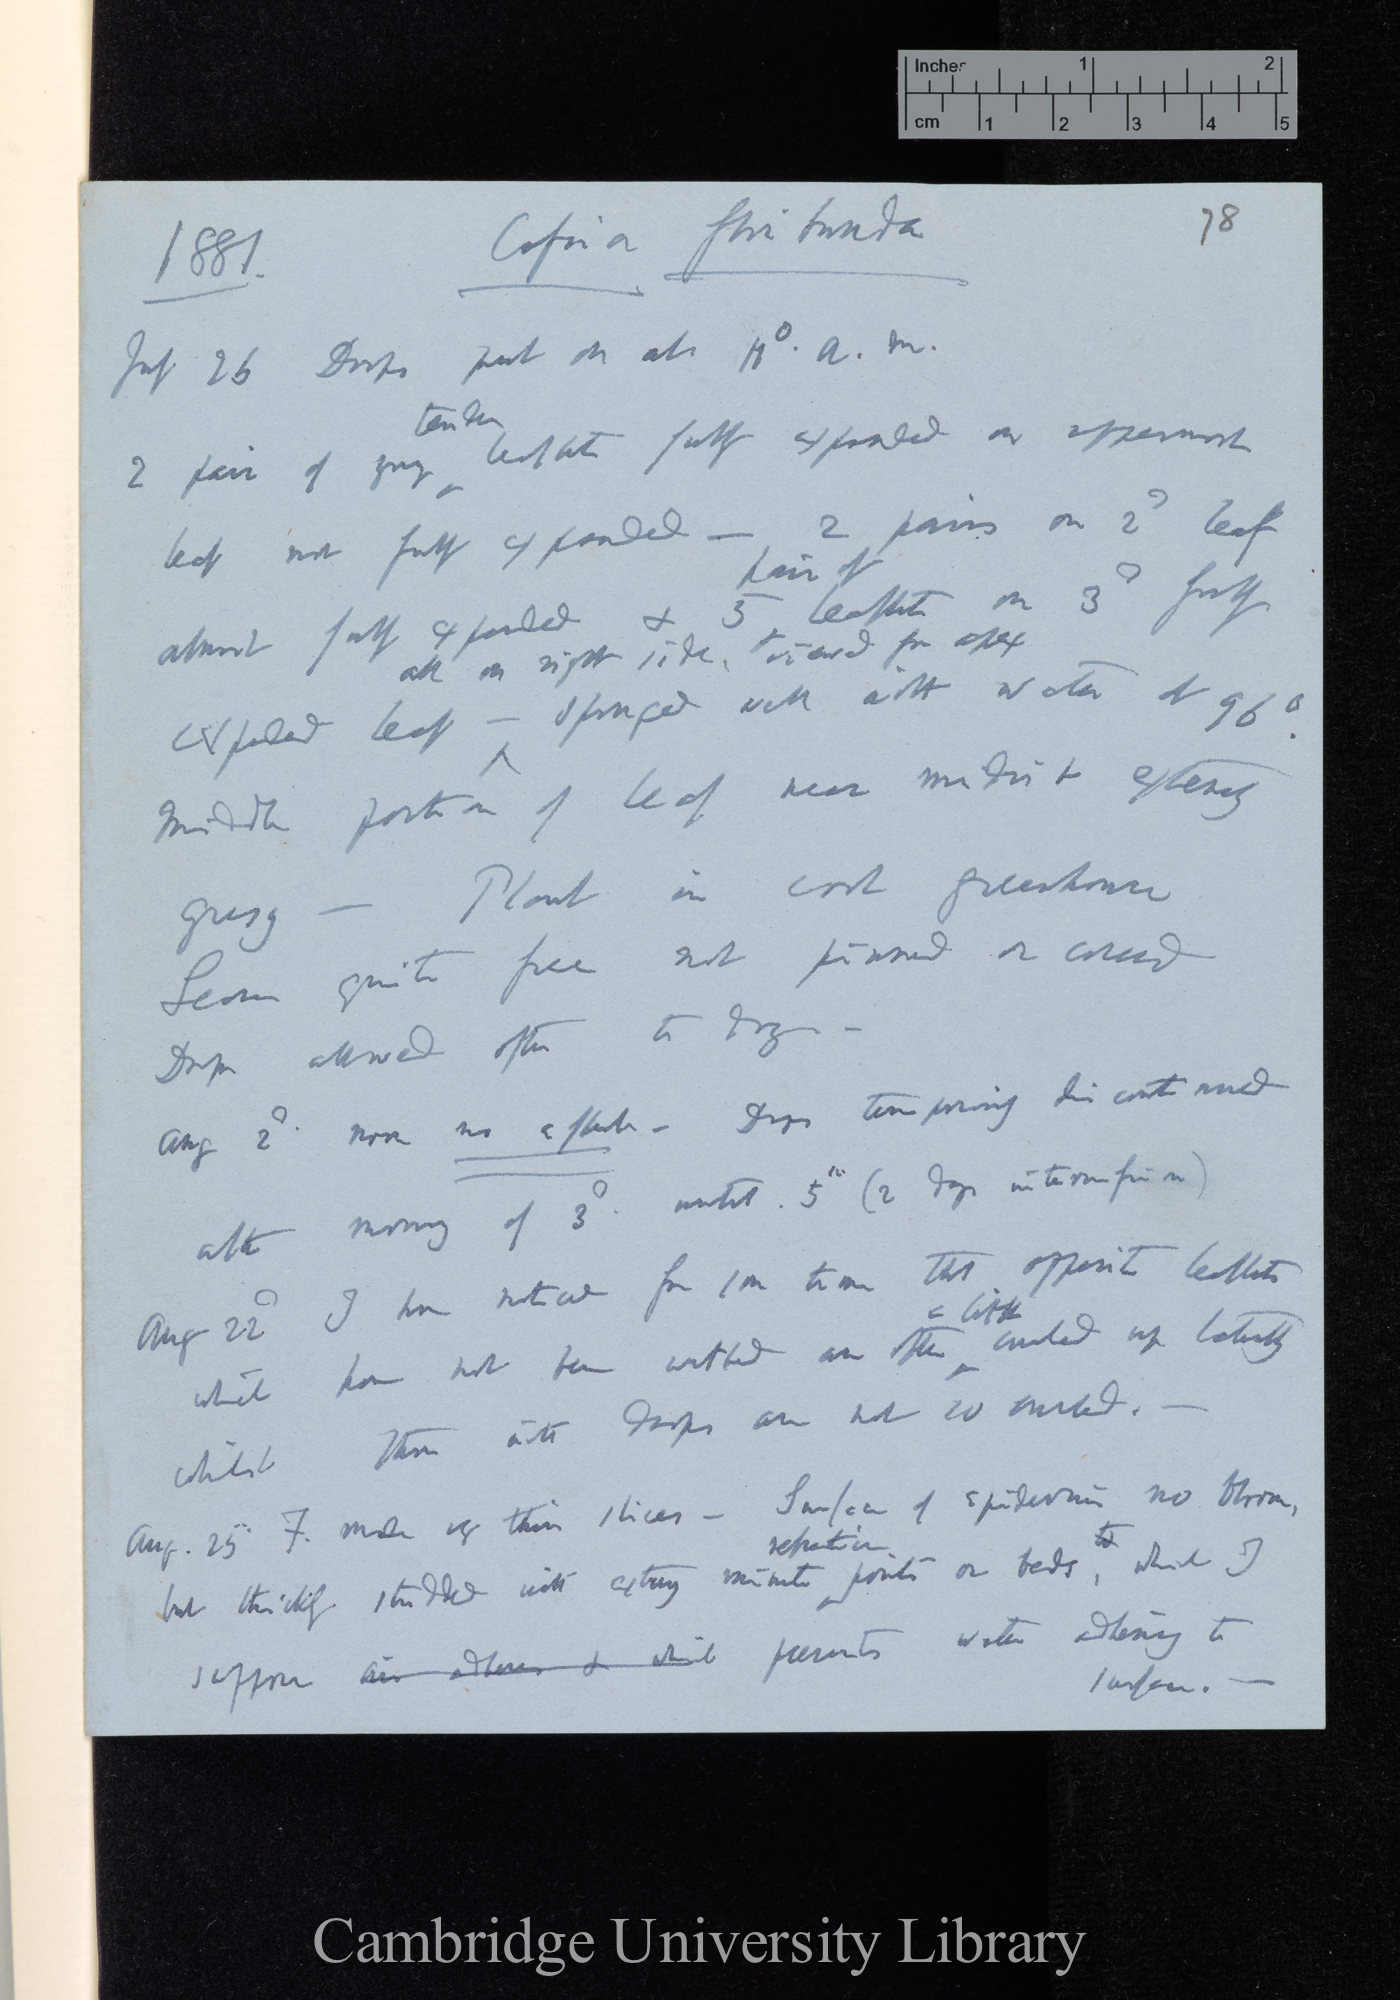 Inches 1 2
cm 1 2 3 4 5
78
1881. Cassia floribunda
July 26 Drops put on at 11° a. m.
tender
2 pair of young leaflets fully expanded on uppermost
leaf not fully expanded — 2 pairs on 2d leaf
pair of
almost fully expanded & 5 leaflets on 3d fully
all on right side, viewed from apex
expanded leaf — sponged well with water at 96°.
Middle portion of leaf near midrib extremely
greasy — Plant in cool greenhouse
Leaves quite free not pinned or
Drops allowed often to dry —
Aug 2d. noon no effects — Drops discontinued
after morning of 3d. until 5th (2 days intermission)
Aug 22d I have noticed for some time that opposite leaflets
a little
which have not been wetted are often curled up laterally
whilst those with drops are not so curled. —
Aug. 25th F. made thin slices — Surface of epidermis no bloom,
but thickly studded with extremely minute points or beads, which I
suppose air adheres & which prevents water adhering to
surface. —
Cambridge University Library